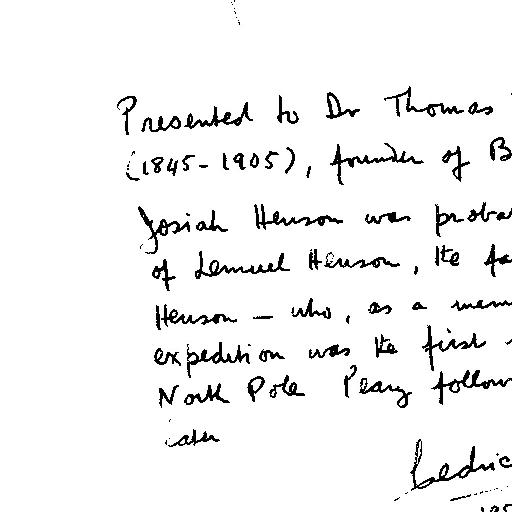 Presented to Dr Thomas
(1845-1905), founder of B
Josiah Henson was proba
of Lemuel Henson, the fa
Henson – who, as a mem
expedition was the first
North Pole Peary follow
later
Cedric